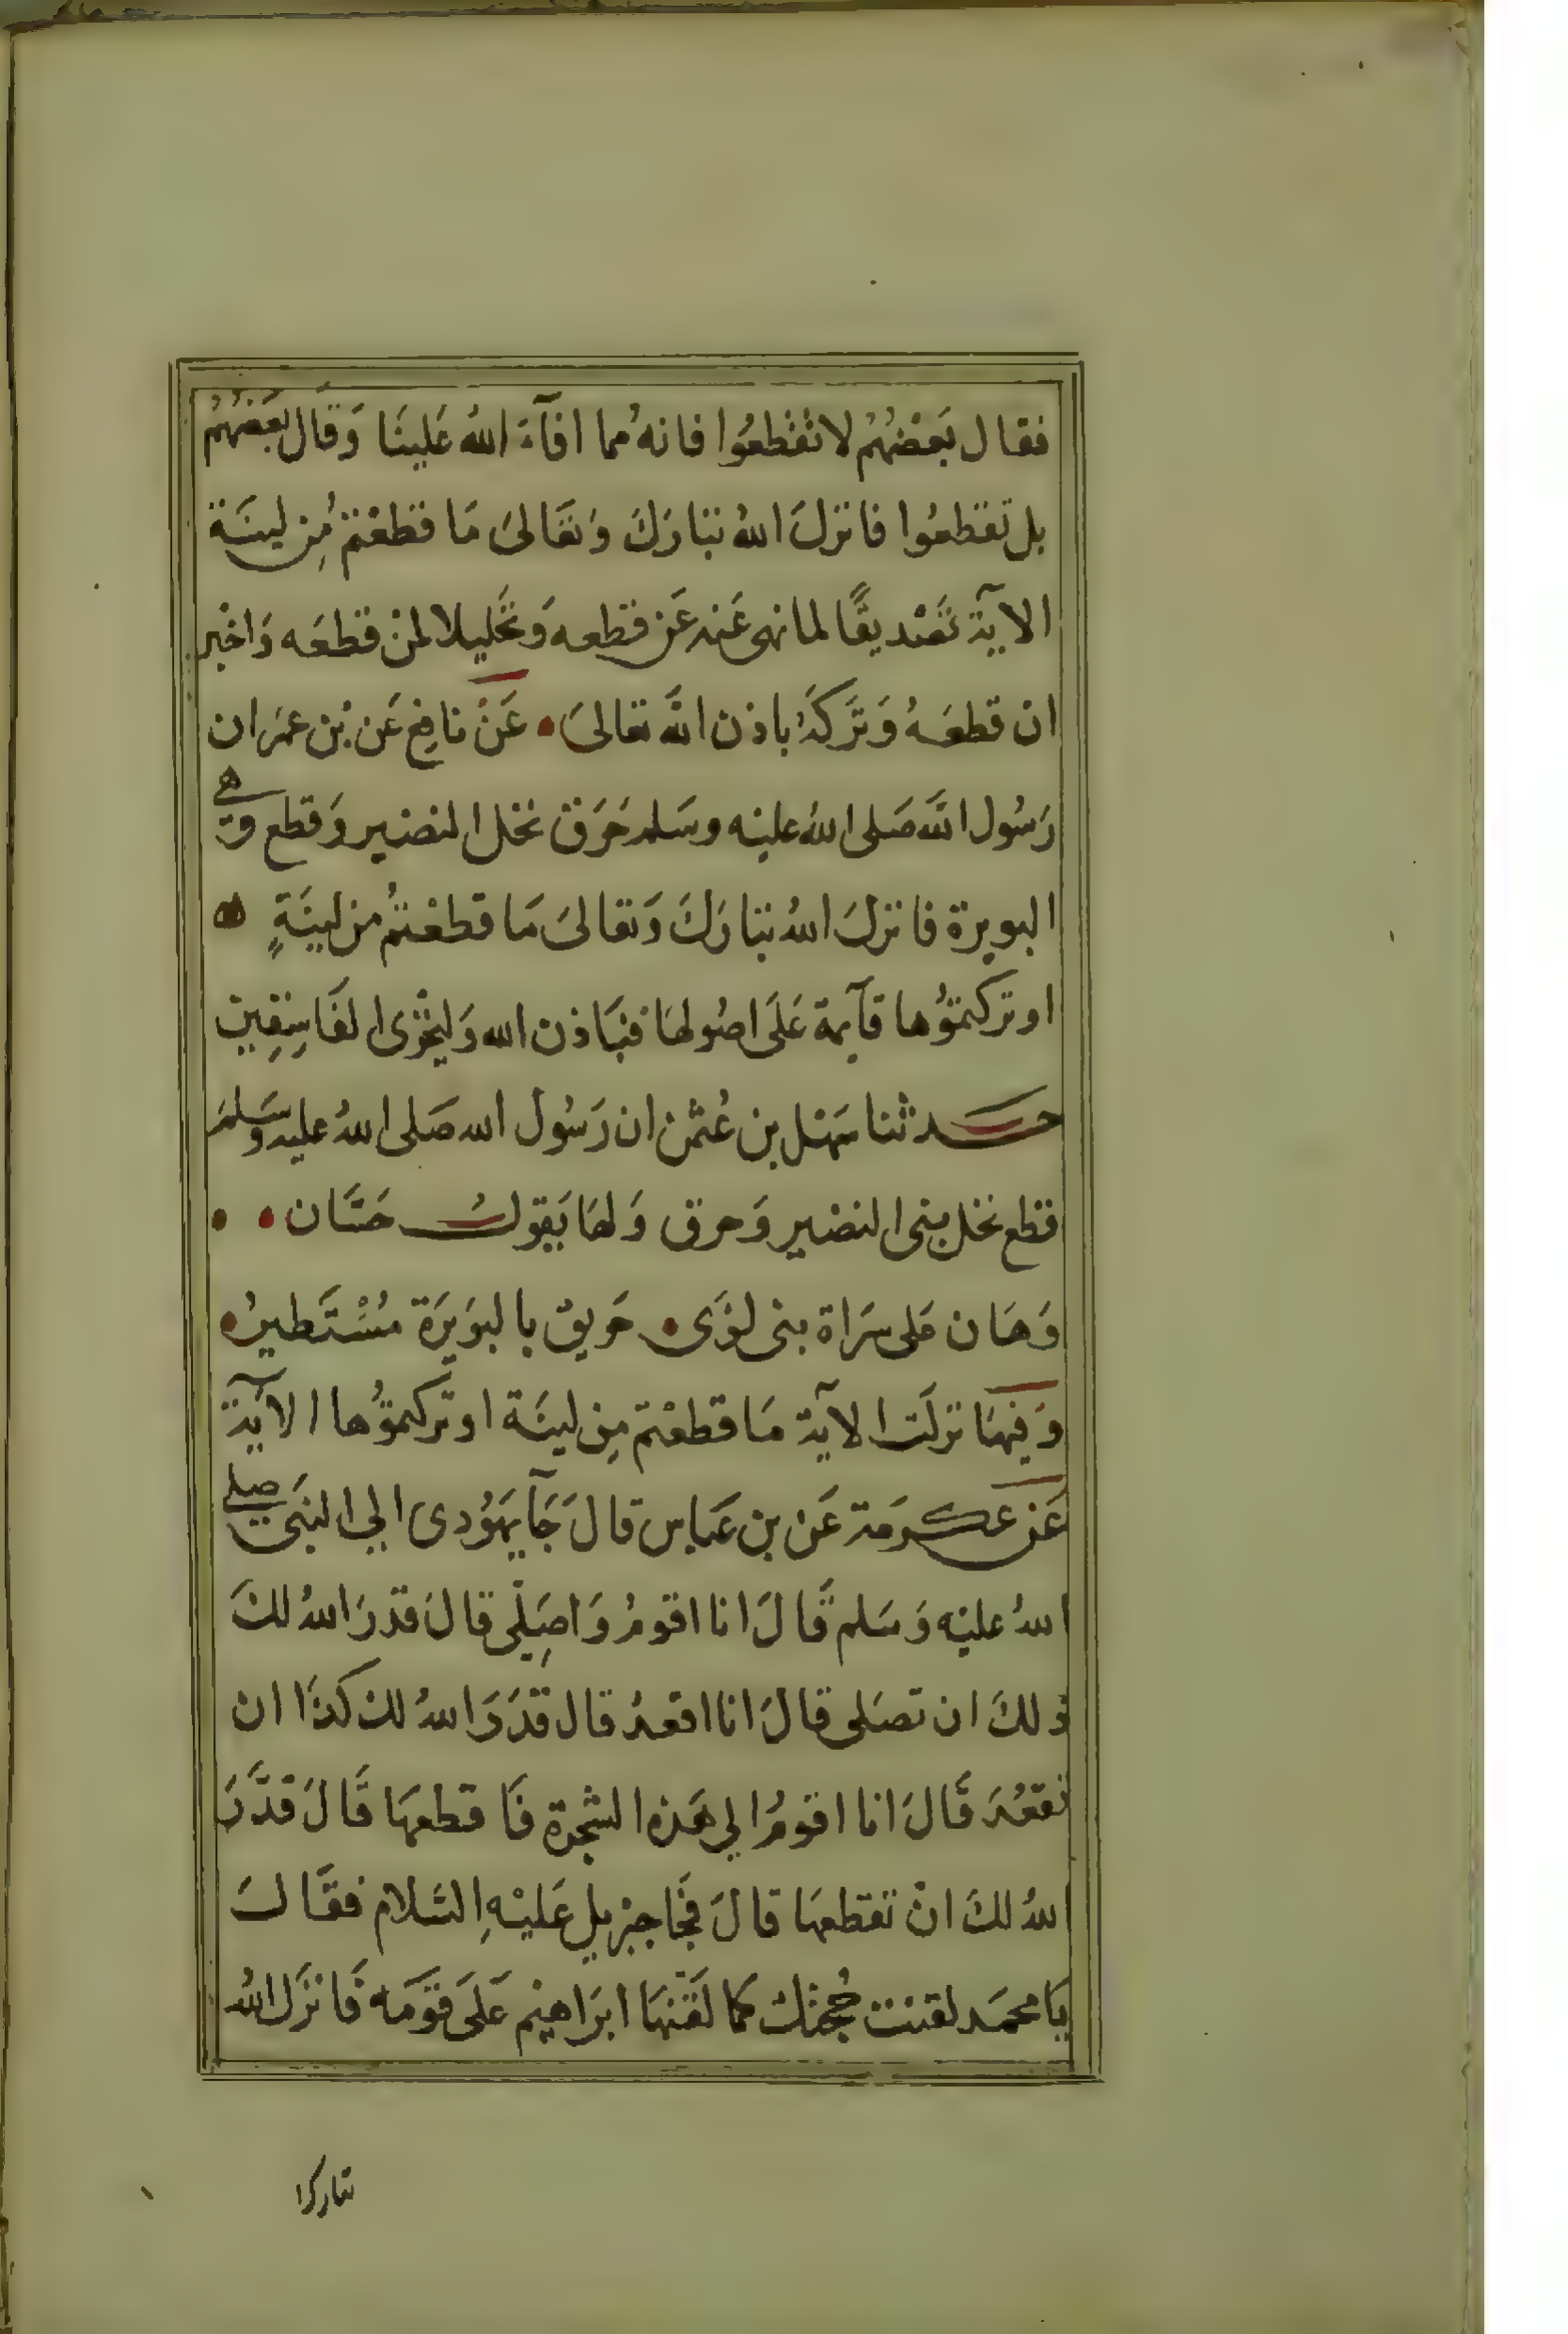 فقال بَعضُهُم لا تقطعُوا فانهُ مما افآءَ اللهُ عَلينَا وَقَال بَعَضُهُمُ
بل تَقطعُوا فانزلَ اللهُ تبارَكَ وَتَعَالىَ مَا قطعْتمُ مِن لينَة
الآية تَصْديقًا لما نهى عَنه عَن قطعه وَتَحليلا لمنْ قطعَه وَاخبر
ان قطعَهُ وَتَركَهُ باذن اللَّه تعالىَ عَنْ نافِع عَن بن عمَر ان
رَسُول اللَّه صَلى اللهُ عليْه وسَلم حَرَقَ نخل النضير وَقطع وَهي
البويرة فانزلَ اللهُ تبارَكَ وَتعالىَ مَا قطعْتمُ من لينَةٍ
او تركتموُها قآيمة عَلَى اصُولهَا فبَاذن الله وَليُخْزى الفَاسِقِين
حَدثنا سَهْل بن عُثمن ان رَسُول الله صَلى اللهُ عليه وَسَلمَ
قطع نخل بنى النضير وَحرق وَلهَا يَقولُ حَسَّان
وَهَان عَلى سَرَاة بنى لؤَى حَريق بالبوَيرَة مُسْتَطيرُ
وَفيهَا نزلَت الآية مَا قطعْتم مِن لينَة او تركتموُها الآية
عَن عكرمَة عَن بن عَباس قالَ جَآ يهَوُدى الي النبَى صلى
اللهُ عليْه وَسَلم قَالَ انا اقومُ وَاصَلّى قالَ قدرَ اللهُ لكَ
ذلكَ ان تصَلى قالَ انا اقعدُ قال قدَرَ اللهُ لك كذَا ان
تقعُدَ قَالَ انا اقومُ الي هَذه الشجرة فَاقطعهَا قَالَ قدَّرَ
اللهُ لكَ انْ تقطعهَا قالَ فجَا جبْريل عَليْهِ السَلام فقَالَ
يَا محمَد لقنت حُجتك كما لَقنَهَا ابرَاهيْم عَلَى قوَمه فَانزَل اللهُ
تبارك